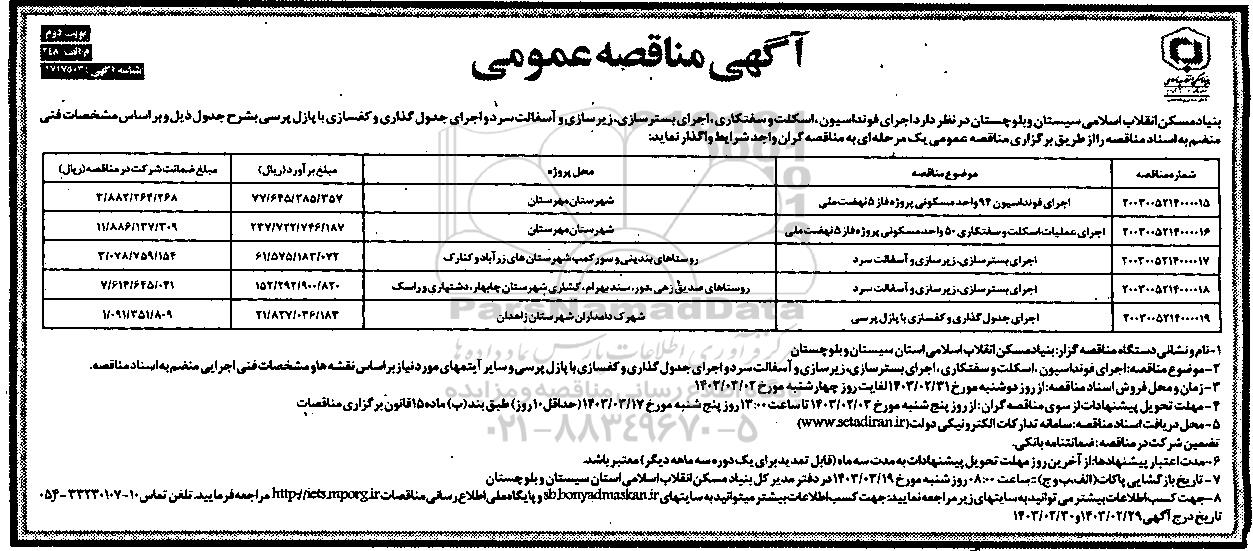 نوبت دوم
م الف: ۲۴۸
آگهی مناقصه عمومی
بنیاد مسکن انقلاب اسلامی سیستان و بلوچستان در نظر دارد اجرای فونداسیون، اسکلت و سفتکاری، اجرای بسترسازی، زیرسازی و آسفالت سرد و اجرای جدول گذاری و کفسازی با پازل پرسی بشرح جدول ذیل و بر اساس مشخصات فنی
منضم به اسناد مناقصه را از طریق برگزاری مناقصه عمومی یک مرحله‌ای به مناقصه گران واجد شرایط واگذار نماید:
شماره مناقصه | موضوع مناقصه | محل پروژه | مبلغ برآورد (ریال) | مبلغ ضمانت شرکت در مناقصه (ریال)
۲۰۰۳۰۰۵۲۱۴۰۰۰۰۱۵ | اجرای فونداسیون ۹۴ واحد مسکونی پروژه فاز ۵ نهضت ملی | شهرستان مهرستان | ۷۷/۶۴۵/۲۸۵/۳۵۷ | ۳/۸۸۲/۲۶۴/۲۶۸
۲۰۰۳۰۰۵۲۱۴۰۰۰۰۱۶ | اجرای عملیات اسکلت و سفتکاری ۵۰ واحد مسکونی پروژه فاز ۵ نهضت ملی | شهرستان مهرستان | ۲۳۷/۷۲۲/۷۴۶/۱۸۷ | ۱۱/۸۸۶/۱۳۷/۳۰۹
۲۰۰۳۰۰۵۲۱۴۰۰۰۰۱۷ | اجرای بسترسازی، زیرسازی و آسفالت سرد | روستاهای بندینی و سورکمب شهرستان های زرآباد و کنارک | ۶۱/۵۷۵/۱۸۳/۰۷۲ | ۳/۰۷۸/۷۵۹/۱۵۴
۲۰۰۳۰۰۵۲۱۴۰۰۰۰۱۸ | اجرای بسترسازی، زیرسازی و آسفالت سرد | روستاهای صدیق زهی، سند بهرام، کشاری شهرستان چابهار، دشتیاری و راسک | ۱۵۲/۲۹۲/۹۰۰/۸۲۰ | ۷/۶۱۴/۶۴۵/۰۴۱
۲۰۰۳۰۰۵۲۱۴۰۰۰۰۱۹ | اجرای جدول گذاری و کفسازی با پازل پرسی | شهرک دامداران شهرستان زاهدان | ۲۱/۸۲۷/۰۳۶/۱۸۳ | ۱/۰۹۱/۳۵۱/۸۰۹
۱- نام و نشانی دستگاه مناقصه گزار: بنیاد مسکن انقلاب اسلامی استان سیستان و بلوچستان
۲- موضوع مناقصه: اجرای فونداسیون، اسکلت و سفتکاری، اجرای بسترسازی، زیرسازی و آسفالت سرد و اجرای جدول گذاری و کفسازی با پازل پرسی و سایر آیتمهای مورد نیاز بر اساس نقشه ها و مشخصات فنی اجرایی منضم به اسناد مناقصه.
۳- زمان و محل فروش اسناد مناقصه: از روز دوشنبه مورخ ۱۴۰۳/۰۲/۳۱ لغایت روز چهارشنبه مورخ ۱۴۰۳/۰۳/۰۲
۴- مهلت تحویل پیشنهادات از سوی مناقصه گران: از روز پنج شنبه مورخ ۱۴۰۳/۰۳/۰۳ تا ساعت ۱۳:۰۰ روز پنج شنبه مورخ ۱۴۰۳/۰۳/۱۷ (حداقل ۱۰ روز) طبق بند (ب) ماده ۱۵ قانون برگزاری مناقصات
۵- محل دریافت اسناد مناقصه: سامانه تدارکات الکترونیکی دولت (www.setadiran.ir)
تضمین شرکت در مناقصه: ضمانتنامه بانکی.
۶- مدت اعتبار پیشنهادها: از آخرین روز مهلت تحویل پیشنهادات به مدت سه ماه (قابل تمدید برای یک دوره سه ماهه دیگر) معتبر باشد.
۷- تاریخ بازگشایی پاکات (الف، ب و ج) = ساعت ۰۸:۰۰ روز شنبه مورخ ۱۴۰۳/۰۳/۱۹ در دفتر مدیر کل بنیاد مسکن انقلاب اسلامی استان سیستان و بلوچستان
۸- جهت کسب اطلاعات بیشتر می توانید به سایتهای زیر مراجعه نمایید: جهت کسب اطلاعات بیشتر میتوانید به سایتهای sb.bonyadmaskan.ir و پایگاه ملی اطلاع رسانی مناقصات http://iets.mporg.ir مراجعه فرمایید. تلفن تماس ۱۰-۳۳۲۳۰۱۰۷-۰۵۴
تاریخ درج آگهی ۱۴۰۳/۰۲/۲۹ و ۱۴۰۳/۰۲/۳۰
ParsNamadData
۰۲۱-۸۸۳۴۹۶۷۰-۵